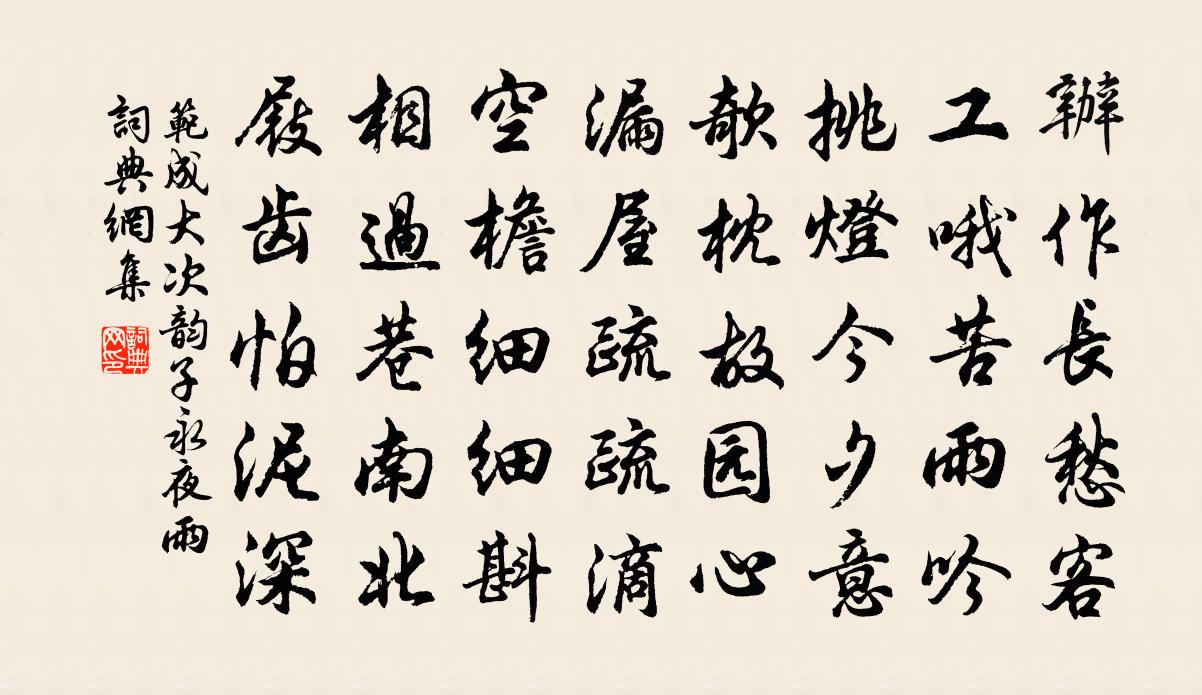 辦作長愁客
工哦苦雨吟
挑燈今夕意
欹枕故园心
漏屋疏疏滴
空檐細細斟
相過巷南北
屐齿怕泥深
範成大次韵子永夜雨
詞典網集
詞典网印